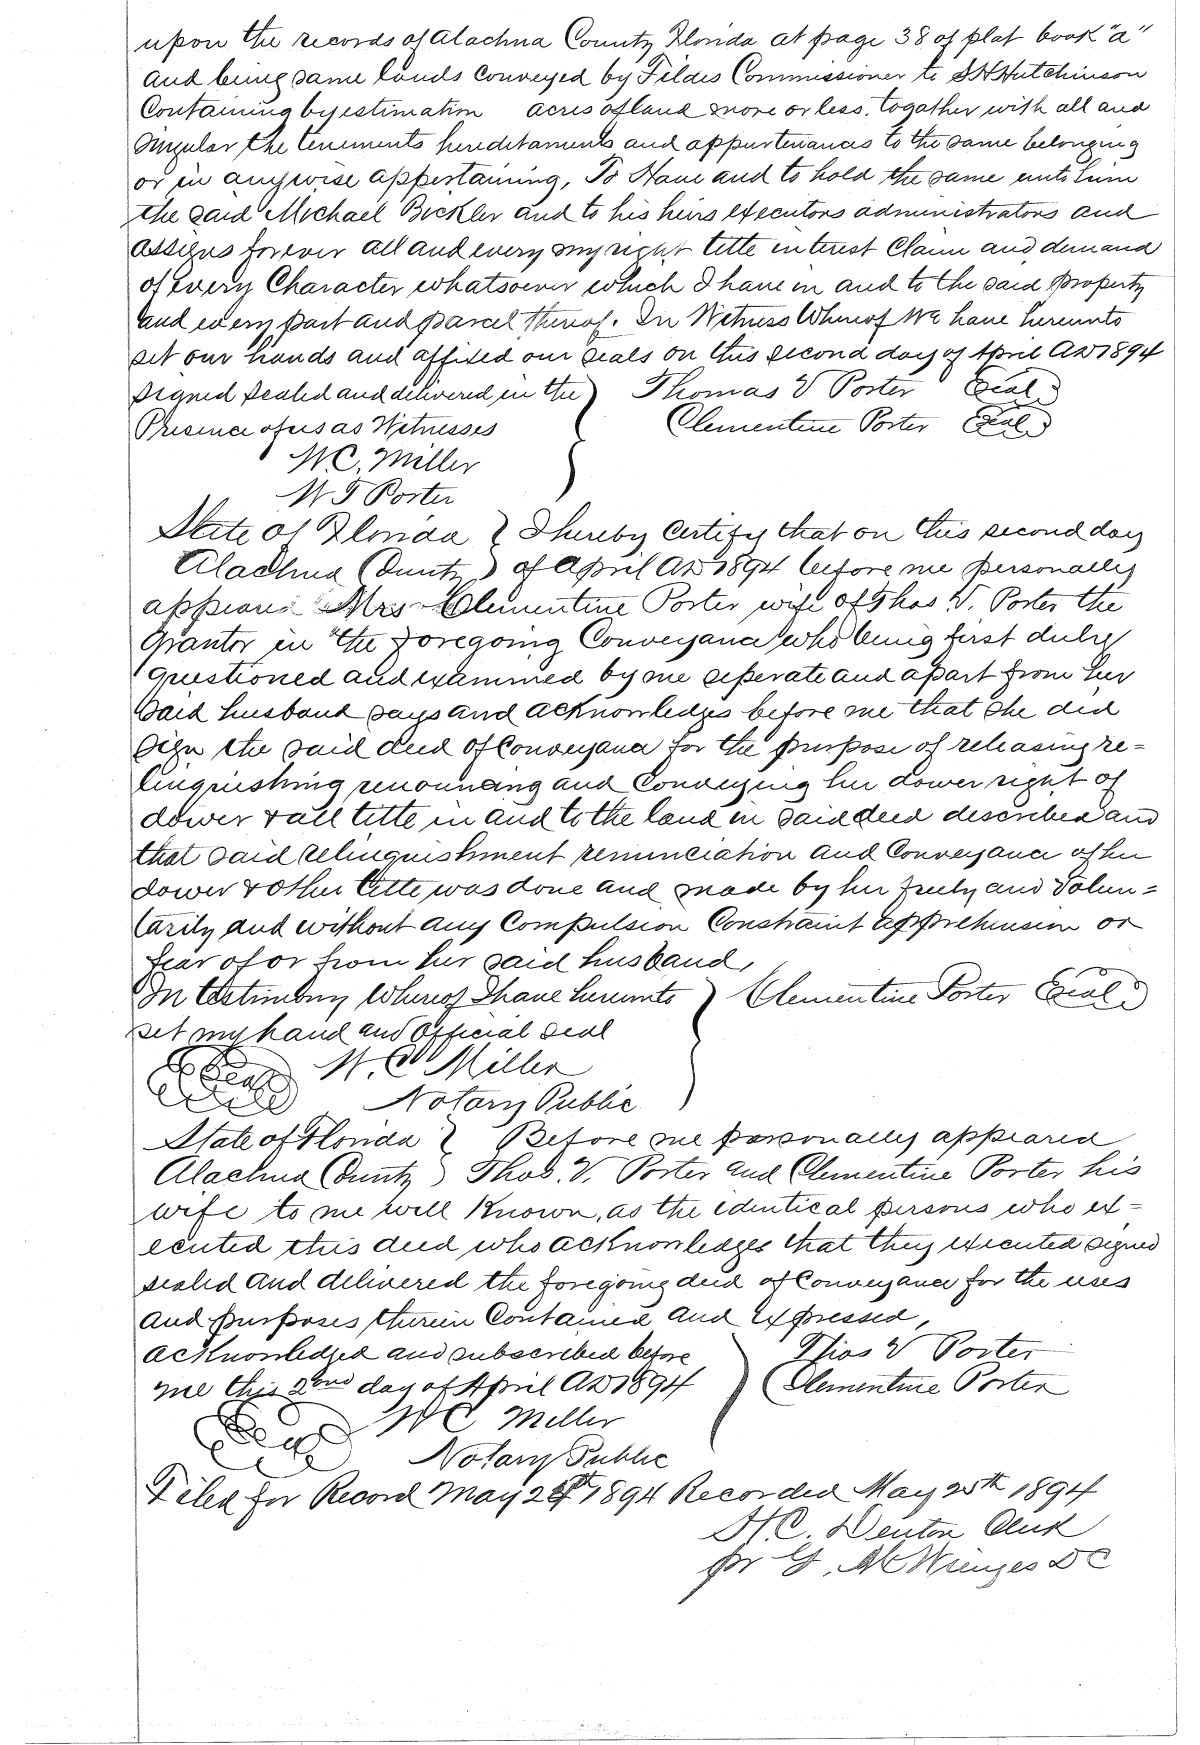 upon the records of Alachua County Florida at page 38 of plat book "a"
and being same lands conveyed by Fildes Commissioner to S H Hutchinson
Containing by estimation acres of land more or less. togather with all and
Singular the tenements hereditaments and appurtenances to the same belonging
or in anywise appertaining, To Have and to hold the same unto him
the said Michael Bickler and to his heirs executors administrators and
assigns forever all and every my right title interest Claim and demand
of every Character whatsoever which I have in and to the said property
and every part and parcel thereof. In Witness Whereof We have hereunto
set our hands and affixed our seals on this second day of April AD 1894
Signed sealed and delivered in the } Thomas V Porter Seal
Presence of us as Witnesses Clementine Porter Seal
W. C. Miller
W T Porter
State of Florida } I hereby Certify that on this second day
Alachua County ) of April AD 1894 before me personally
appeared Mrs Clementine Porter wife of Thos V. Porter the
Grantor in the foregoing Conveyance who being first duly
questioned and examined by me seperate and apart from her
said husband says and acknowledges before me that she did
sign the said deed of Conveyance for the purpose of releasing re=
linquishing renouncing and Conveying her dower right of
dower & all title in and to the land in said deed described and
that said relinquishment renunciation and Conveyance of her
dower & other title was done and made by her freely and Volun=
tarily and without any Compulsion Constraint apprehension or
fear of or from her said husband,
In testimony Whereof I have hereunto } Clementine Porter Seal
set my hand and Official seal
Seal W. C Miller
Notary Public
State of Florida } Before me personally appeared
Alachua County ) Thos. V. Porter and Clementine Porter his
wife to me well Known, as the identical persons who ex=
ecuted this deed who acknowledges that they executed signed
sealed and delivered the foregoing deed of Conveyance for the uses
and purposes therein Contained and expressed,
acknowledged and subscribed before } Thos V Porter
me this 2nd day of April AD 1894 Clementine Porter
Seal W C Miller
Notary Public
Filed for Record May 1894 Recorded May 25th 1894
H. C. Denton Clerk
pr G. M D C